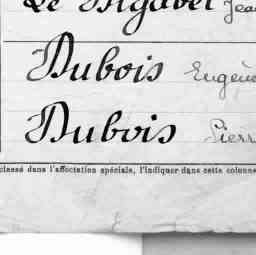 Le Bigabel Jean
Dubois Eugène
Dubois Pierr
classé dans l'affectation spéciale, l'indiquer dans cette colonne